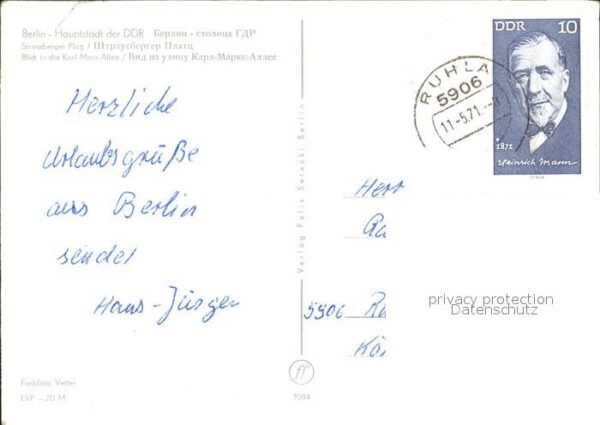 Berlin - Hauptstadt der DDR Берлин - столица ГДР
Strausberger Platz / Штраусбергер Платц
Blick in die Karl-Marx-Allee / Вид на улицу Карл-Маркс-Аллее
Herzliche
Urlaubsgrüße
aus Berlin
sendet
Hans-Jürgen
Farbfoto: Vetter
EVP -20 M
Verlag Felix Setecki Berlin
1084
DDR 10
1871
Heinrich Mann
RUHLA
5906
11.-5.71.-
Herr
5906
privacy protection
Datenschutz